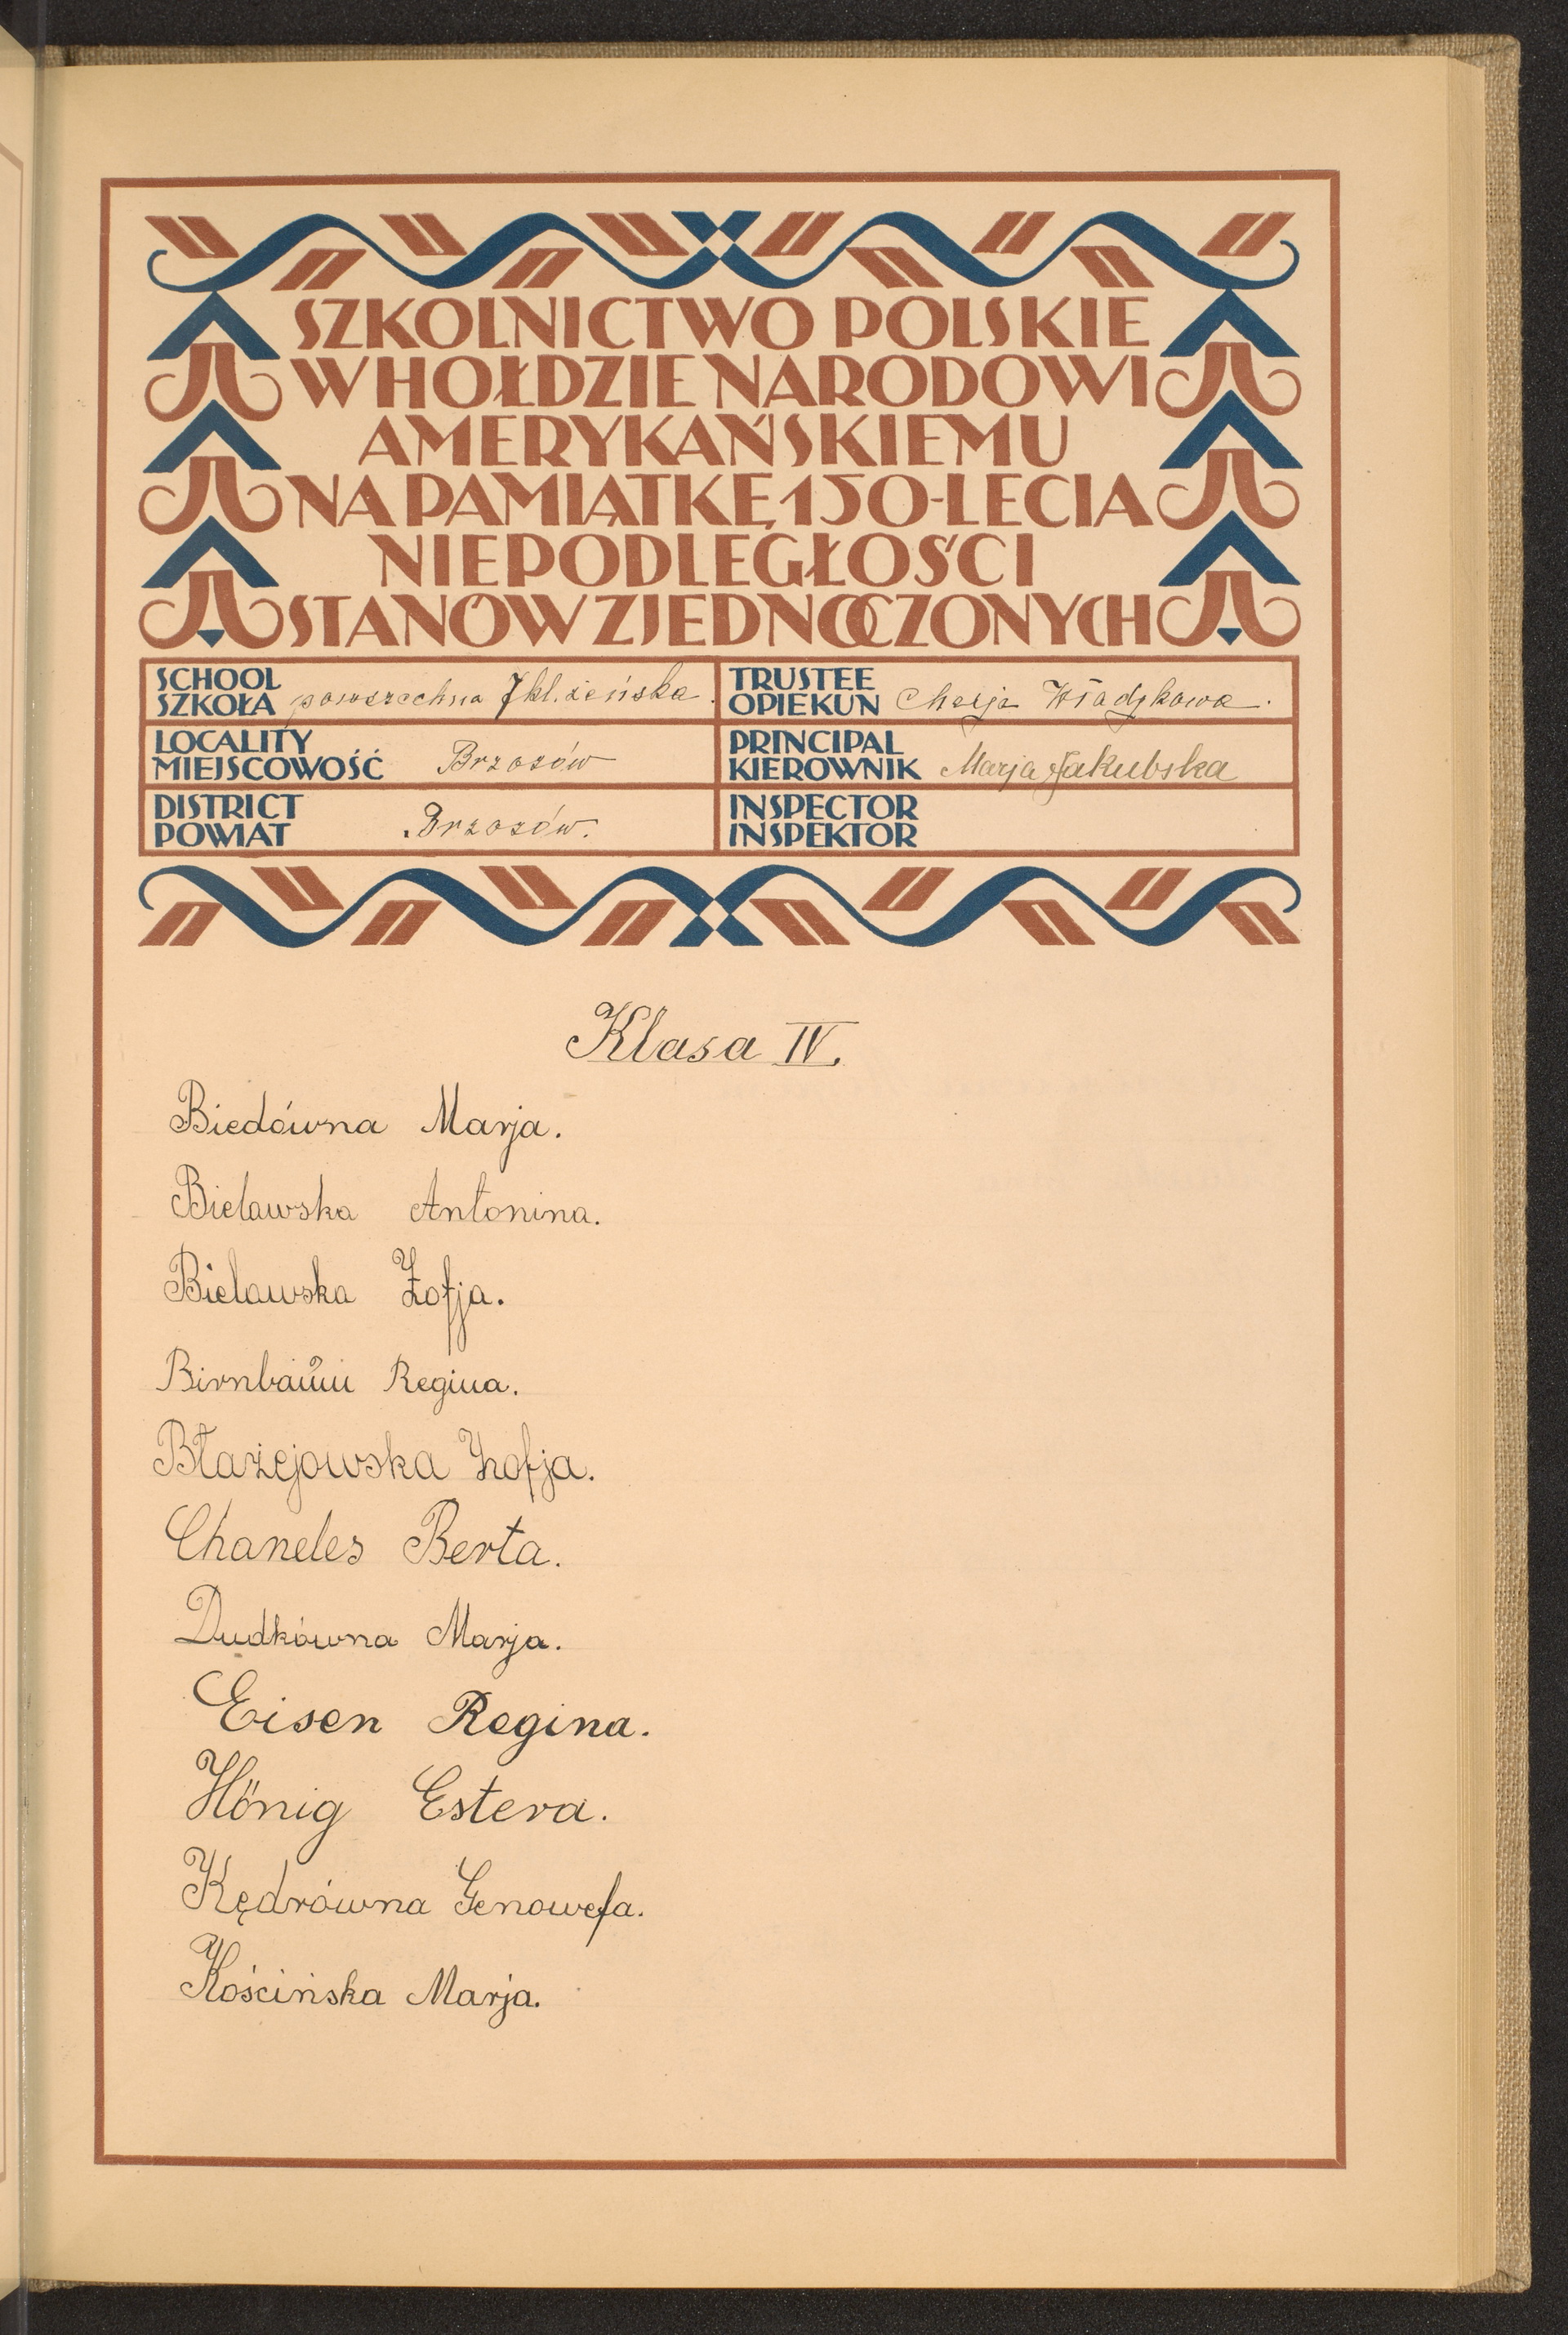 SZKOLNICTWO POLSKIE
W HOŁDZIE NARODOWI
AMERYKAŃSKIEMU
NA PAMIĄTKĘ 150-LECIA
NIEPODLEGŁOŚCI
STANÓW ZJEDNOCZONYCH
SCHOOL
SZKOŁA powszechna 7kl. żeńska.
TRUSTEE
OPIEKUN Władykowa.
LOCALITY
MIEJSCOWOŚĆ Brzozów
PRINCIPAL
KIEROWNIK Marja Jakubska
DISTRICT
POWIAT Brzozów.
INSPECTOR
INSPEKTOR
Klasa IV.
Biedówna Marja.
Bielawska Antonina.
Bielawska Zofja.
Birnbaum Regina.
Błażejowska Zofja.
Chaneles Berta.
Dudkówna Marja.
Eisen Regina.
Hönig Estera.
Kędrówna Genowefa.
Kościńska Marja.